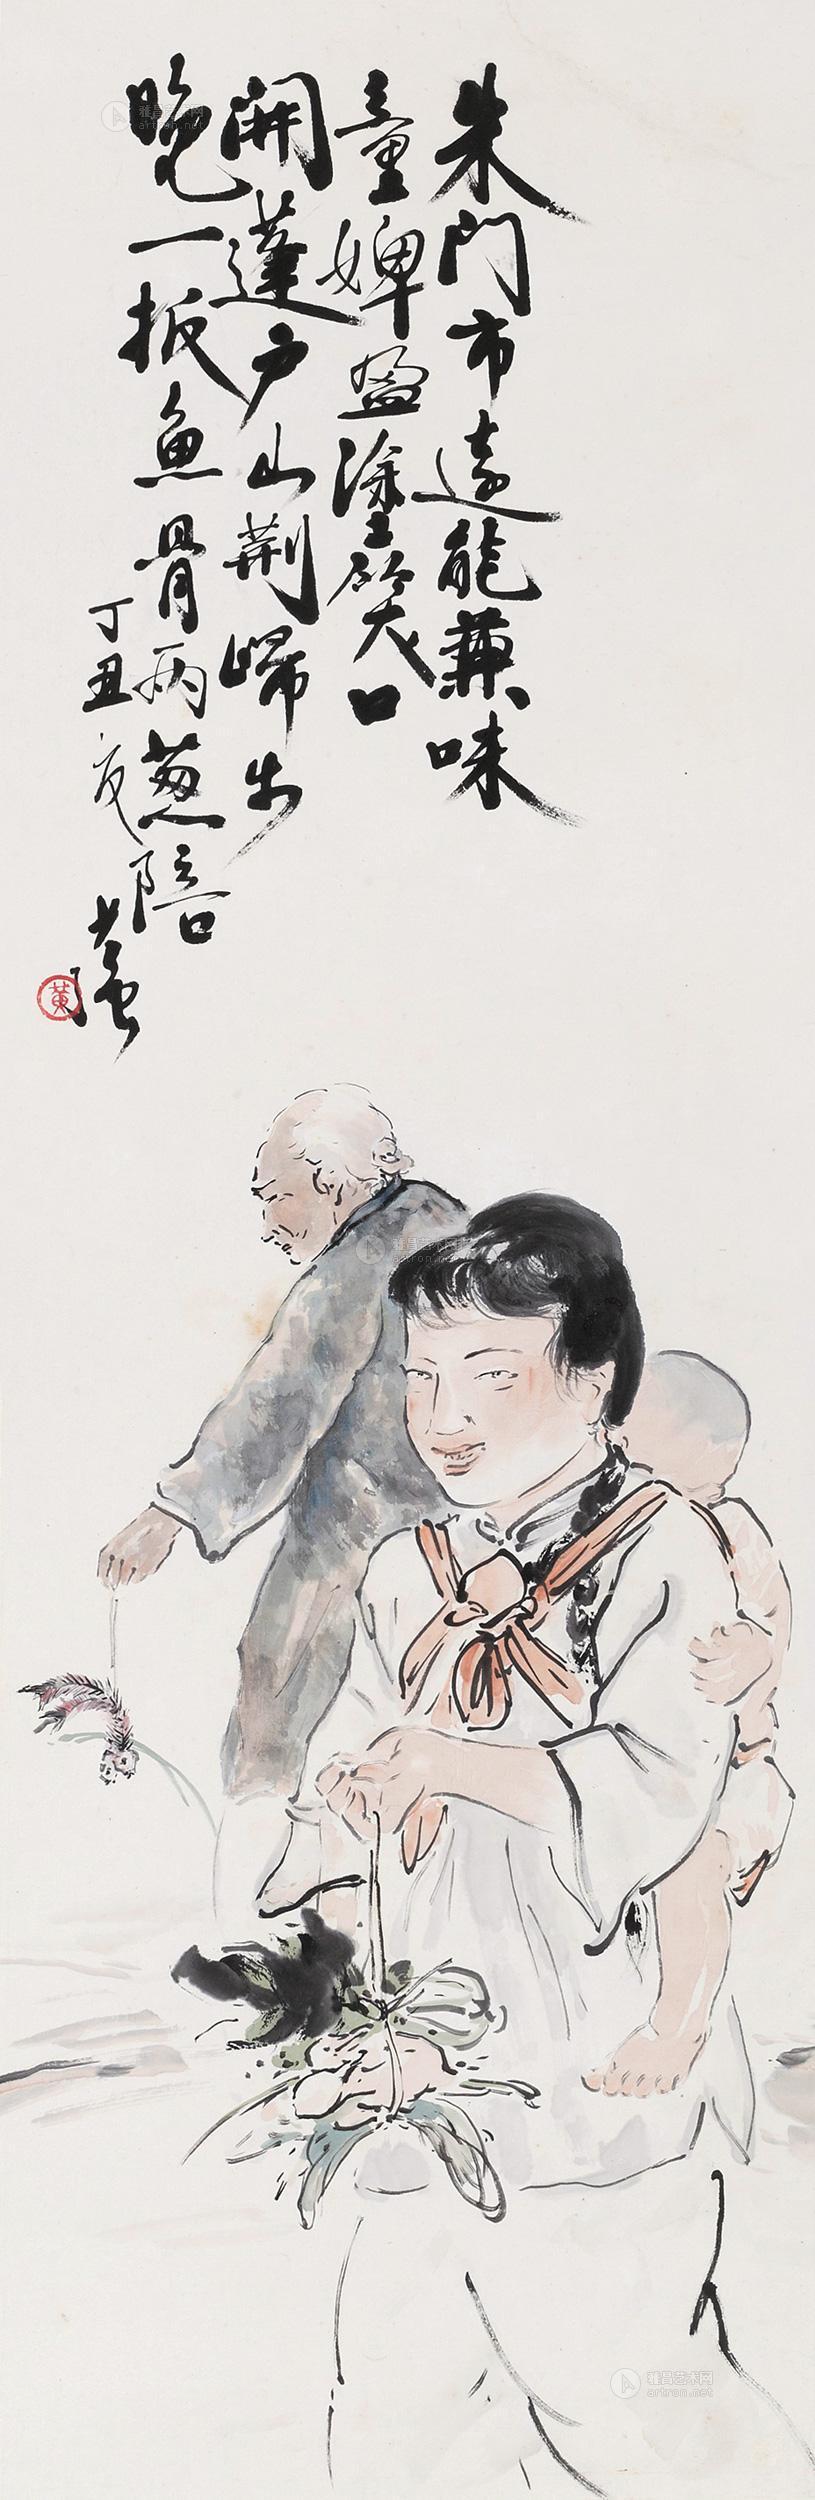 朱門市遠能兼味
童婢盈塗笑口
開蓬户山荆歸步
晚一扳魚骨兩蔥陪
丁丑夏
少強
黃
雅昌艺术网
artron.net
雅昌艺术网
artron.net
雅昌艺术网
artron.net